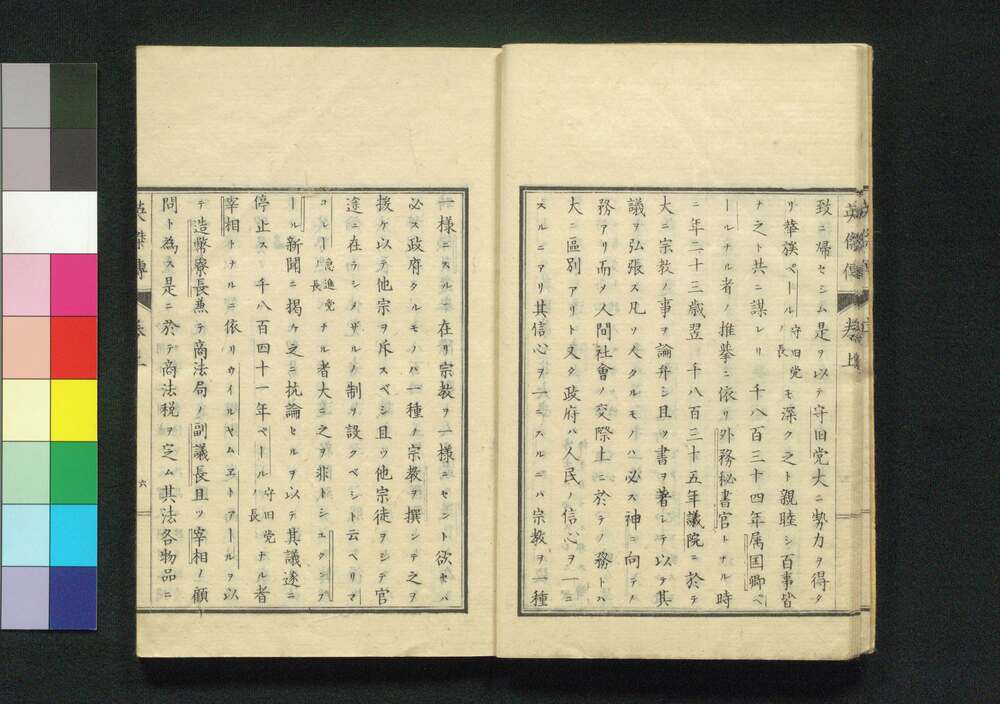 致ニ帰セシム是ヲ以テ守旧党大ニ勢力ヲ得タ
リ華族ベール守旧党ノ長モ深ク之ト親睦シ百事皆
ナ之ト共ニ謀レリ 千八百三十四年属国卿ベ
ールナル者ノ推挙ニ依リ外務秘書官トナル時
ニ年二十三歳翌 千八百三十五年議院ニ於テ
大ニ宗教ノ事ヲ論弁シ且ツ書ヲ著シテ以テ其
議ヲ弘張ス凡ソ人タルモノハ必ス神ニ向テノ
務アリ而メ人間社會ノ交際上ニ於テノ務トハ
大ニ區別アリト又タ政府ハ人民ノ信心ヲ一ニ
スルニアリ其信心ヲ一ニスルニハ宗教ヲ一種
英傑傳 巻上
一様ニスルニ在リ宗教ヲ一様ニセント欲セハ
必ス政府タルモノハ一種ノ宗教ヲ撰ンテ之ヲ
援ケ以テ他宗ヲ斥スベシ且ツ他宗徒ヲシテ官
途ニ在ラシメザルノ制ヲ設クベシト云ヘリマ
コルー急進党ノ長ナル者大ニ之ヲ非トシユクシブ
ール新聞ニ掲ケ之ニ抗論セルヲ以テ其議遂ニ
停止ス 千八百四十一年ベール守旧党ノ長ナル者
宰相トナルニ依リウイルヤムエトアールヲ以
テ造幣寮長兼テ商法局ノ副議長且ツ宰相ノ顧
問ト為ス是ニ於テ商法税ヲ定ム其法各物品ニ
英傑傳 巻上 六